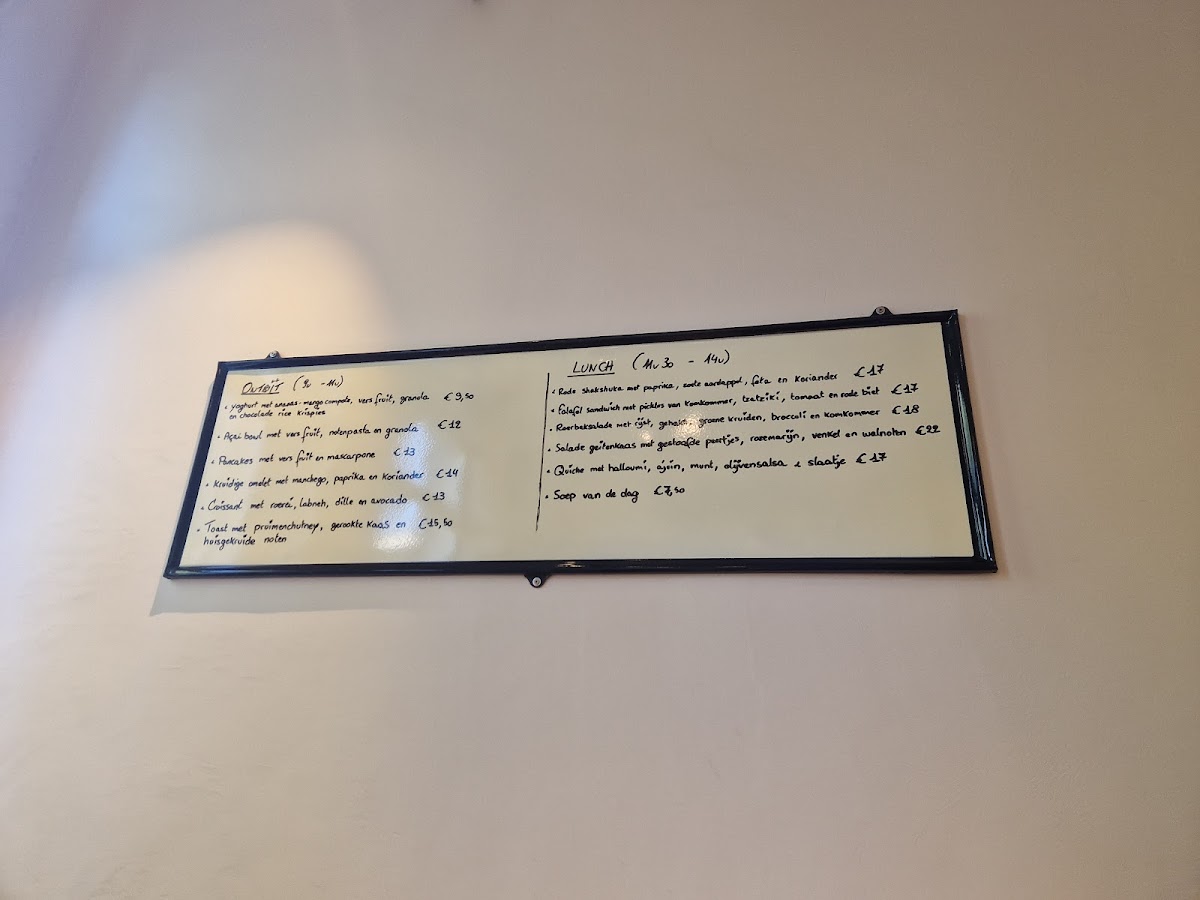 ONTBIJT (9u - 11u)
• Yoghurt met ananas-mango compote, vers fruit, granola € 9,50
en chocolade rice krispies
• Açai bowl met vers fruit, notenpasta en granola € 12
• Pancakes met vers fruit en mascarpone € 13
• Kruidige omelet met manchego, paprika en koriander € 14
• Croissant met roerei, labneh, dille en avocado € 13
• Toast met pruimenchutney, gerookte kaas en € 15,50
huisgekruide noten
LUNCH (11u30 - 14u)
• Rode shakshuka met paprika, zoete aardappel, feta en koriander € 17
• Falafel sandwich met pickles van komkommer, tzatziki, tomaat en rode biet € 17
• Roerbaksalade met rijst, gehakt, groene kruiden, broccoli en komkommer € 18
• Salade geitenkaas met gestoofde peertjes, rozemarijn, venkel en walnoten € 22
• Quiche met halloumi, ajuin, munt, olijvensalsa & slaatje € 17
• Soep van de dag € 7,50